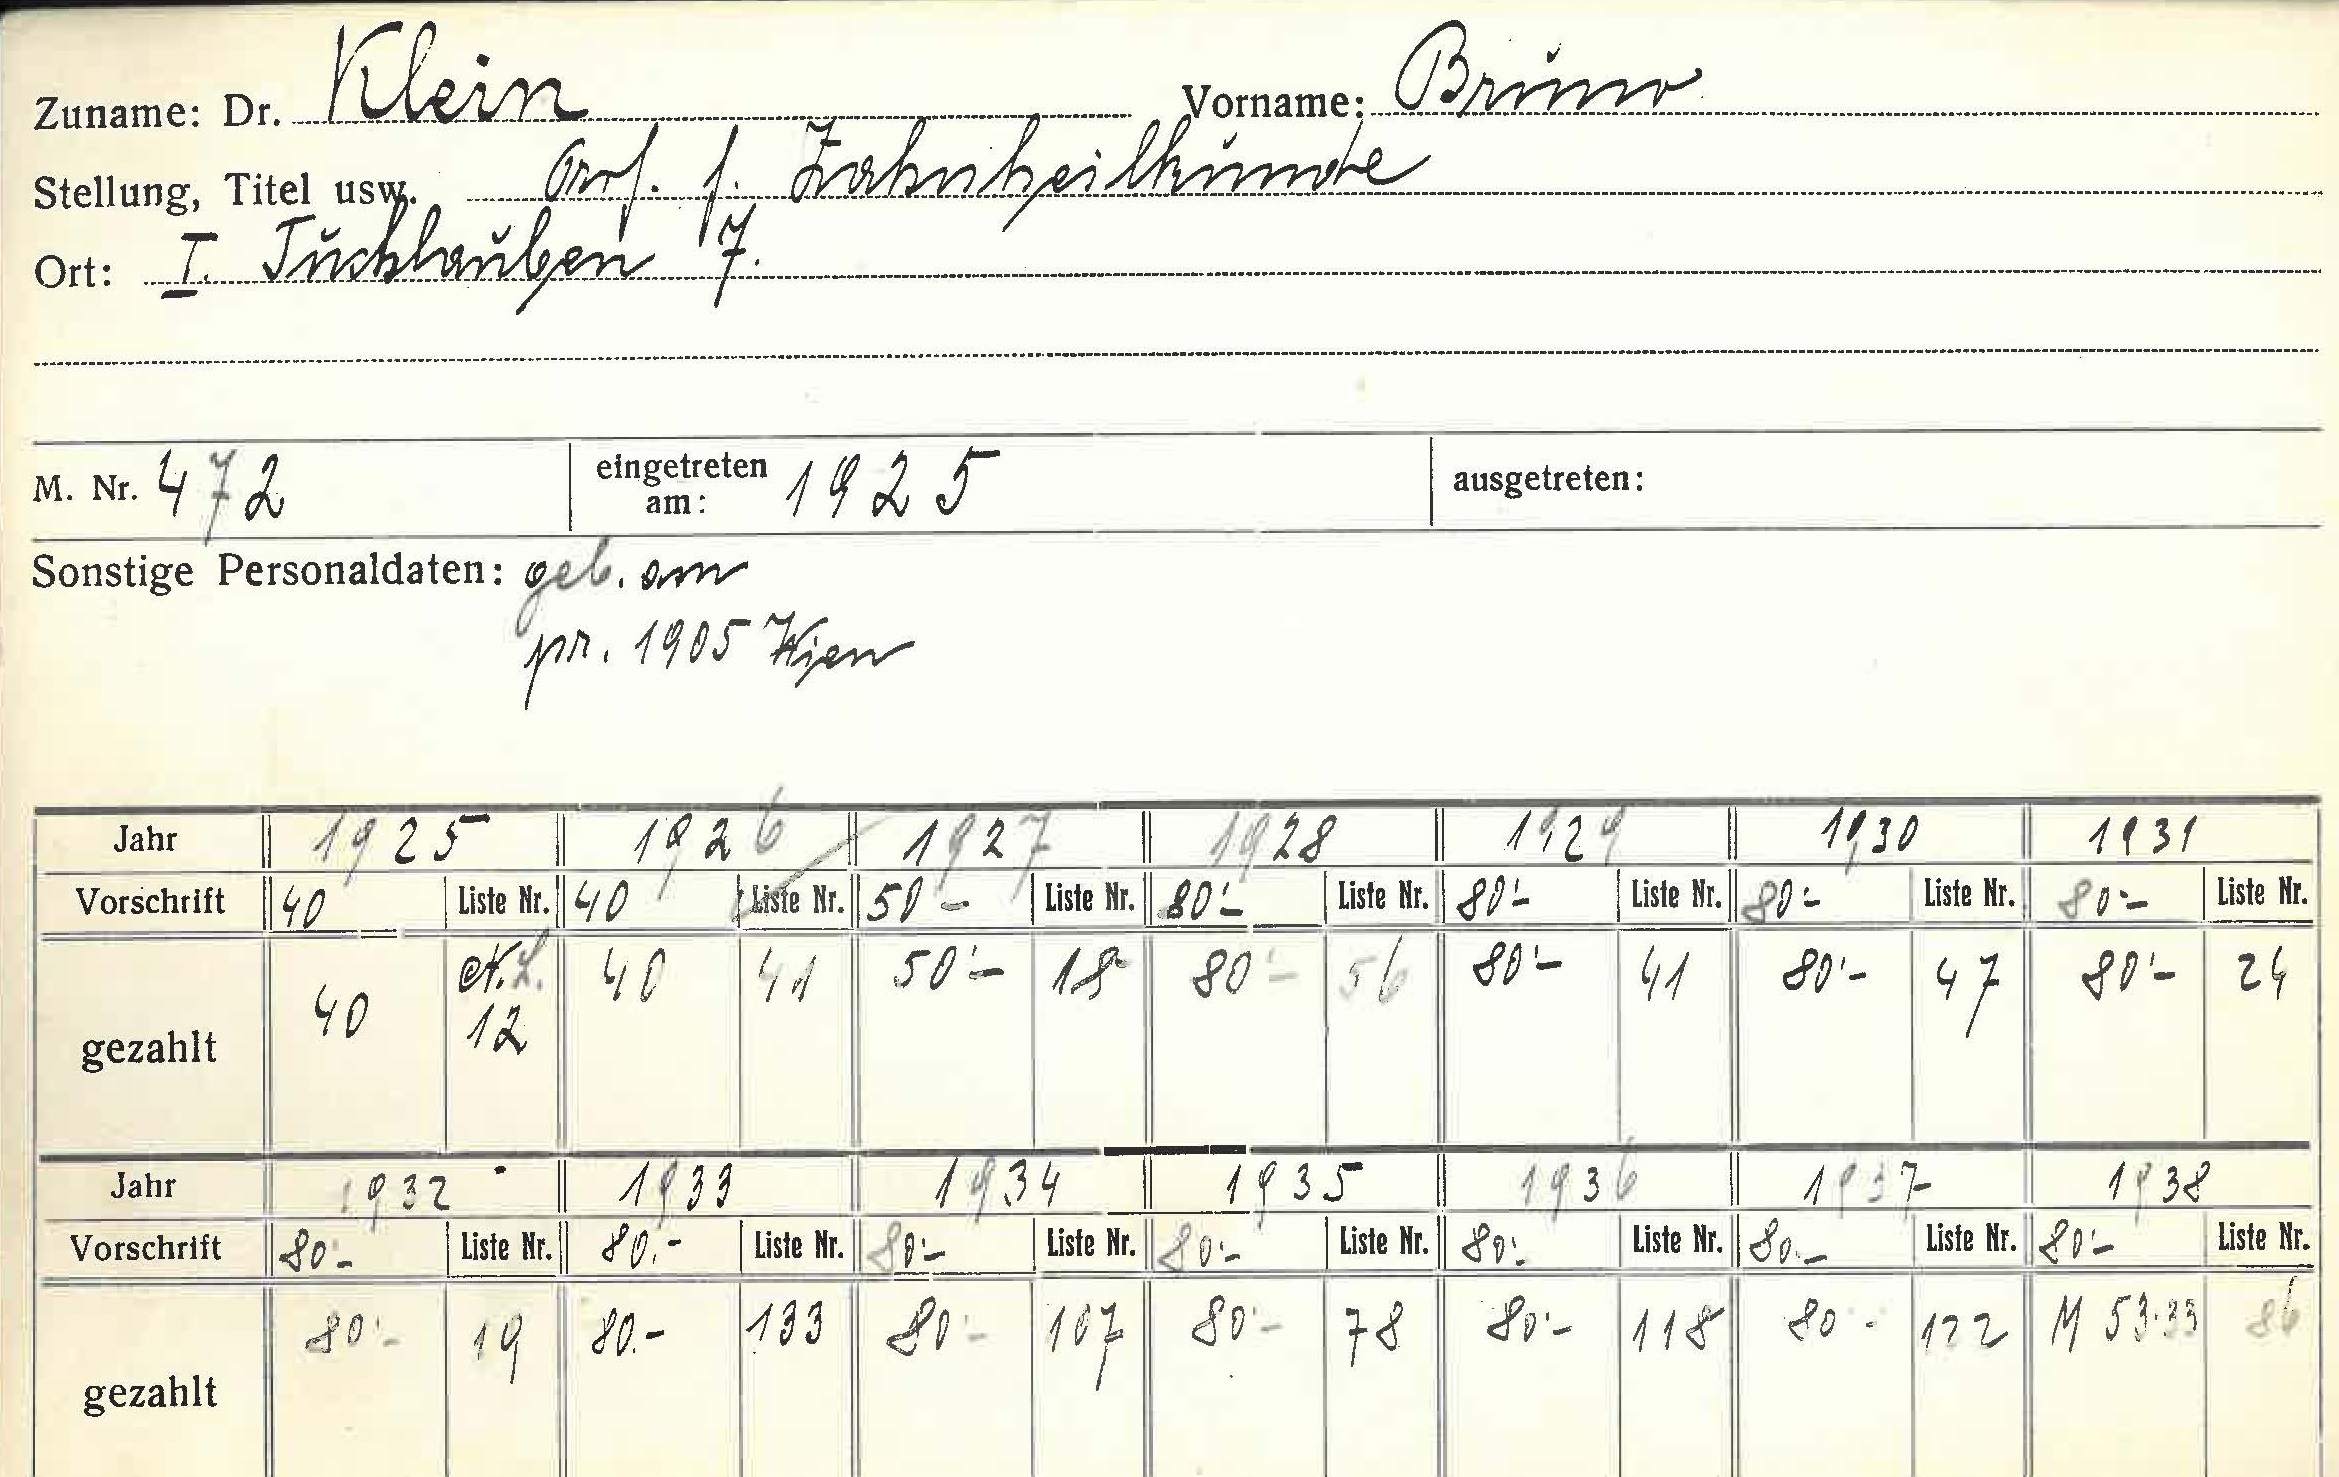 Zuname: Dr. Klein Vorname: Bruno
Stellung, Titel usw. Prof. f. Zahnheilkunde
Ort: I. Tuchlauben 7.
M. Nr. 472 eingetreten am: 1925 ausgetreten:
Sonstige Personaldaten: geb. am
pr. 1905 Wien
Jahr 1925 1926 1927 1928 1929 1930 1931
Vorschrift 40 Liste Nr. 40 Liste Nr. 50.- Liste Nr. 80.- Liste Nr. 80.- Liste Nr. 80.- Liste Nr. 80.- Liste Nr.
gezahlt 40 12 40 41 50.- 18 80.- 56 80.- 41 80.- 47 80.- 24
Jahr 1932 1933 1934 1935 1936 1937 1938
Vorschrift 80.- Liste Nr. 80.- Liste Nr. 80.- Liste Nr. 80.- Liste Nr. 80.- Liste Nr. 80.- Liste Nr. 80.- Liste Nr.
gezahlt 80.- 19 80.- 133 80.- 107 80.- 78 80.- 118 80.- 122 M 53.33 86